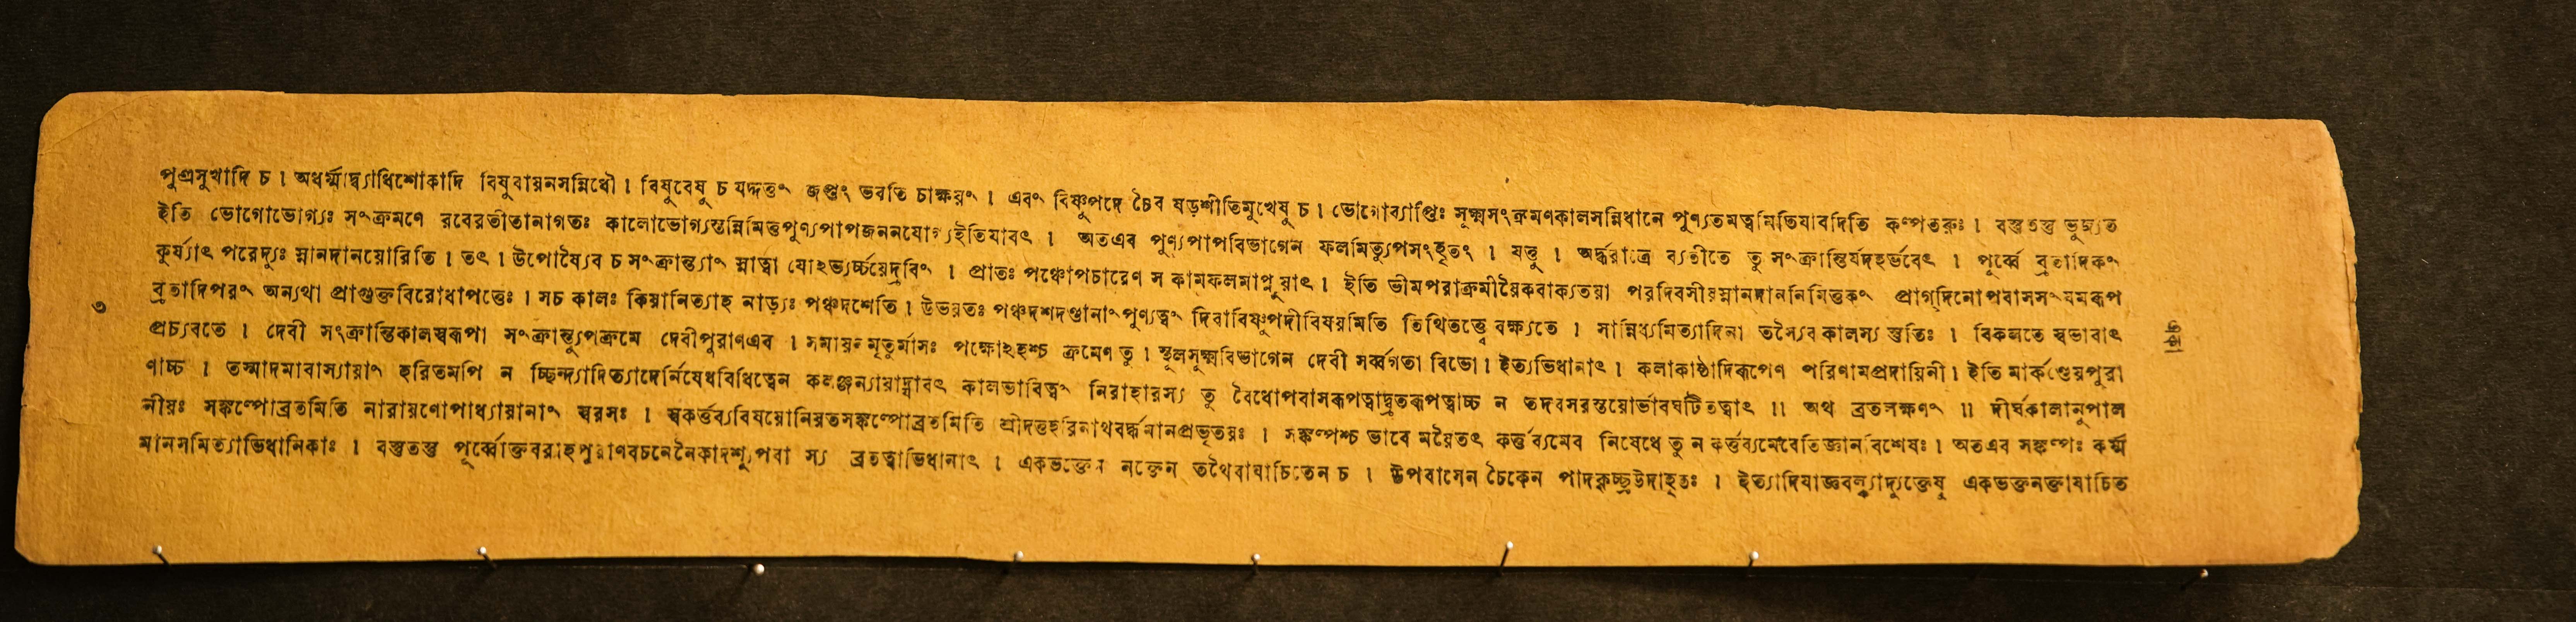 পুণ্রসুখাদি চ । অধর্ম্মাদ্ব্যাধিশোকাদি বিষুবায়নসন্নিধৌ । বিষুবেষু চ যদ্দত্তং জপ্তং ভবতি চাক্ষয়ং । এবং বিষ্ণুপদে চৈব ষড়শীতিমুখেষু চ । ভোগোব্যাপ্তিঃ সূক্ষ্মসংক্রমণকালসন্নিধানে পুণ্যতমত্বমিতিযাবদিতি কল্পতরুঃ । বস্তুতস্তু ভুজ্যত
ইতি ভোগোভোগ্যঃ সংক্রমণে রবেরতীতানাগতঃ কালোভোগ্যস্তন্নিমিত্তপুণ্যপাপজননযোগ্যইতিযাবৎ । অতএব পুণ্যপাপবিভাগেন ফলমিত্যুপসংহৃতং । যত্তু । অর্দ্ধরাত্রে ব্যতীতে তু সংক্রান্তির্যদহর্ভবেৎ । পূর্ব্বে ব্রতাদিকং
কুর্য্যাৎ পরেদ্যুঃ স্নানদানয়োরিতি । তৎ । উপোষ্যৈব চ সংক্রান্ত্যাং স্নাত্বা যোঽভ্যর্চ্চয়েদ্রবিং । প্রাতঃ পঞ্চোপচারেণ স কামফলমাপ্নুয়াৎ । ইতি ভীমপরাক্রমীয়ৈকবাক্যতয়া পরদিবসীয়স্নানদাননিমিত্তকং প্রাগ্দিনোপবাসসংযমরূপ
ব্রতাদিপরং অন্যথা প্রাগুক্তবিরোধাপত্তেঃ । সচ কালঃ কিয়ানিত্যাহ নাড়্যঃ পঞ্চদশেতি । উভয়তঃ পঞ্চদশদণ্ডানাং পুণ্যত্বং দিবাবিষ্ণুপদীবিষয়মিতি তিথিতত্ত্বে বক্ষ্যতে । সান্নিধ্যমিত্যাদিনা তস্যৈব কালস্য স্তুতিঃ । বিকল্পতে স্বভাবাৎ
প্রচ্যবতে । দেবী সংক্রান্তিকালস্বরূপা সংক্রান্ত্যুপক্রমে দেবীপুরাণএব । সমায়নমৃতুর্মাসঃ পক্ষোঽহশ্চ ক্রমেণ তু । স্থূলসূক্ষ্মবিভাগেন দেবী সর্ব্বগতা বিভো । ইত্যভিধানাৎ । কলাকাষ্ঠাদিরূপেণ পরিণামপ্রদায়িনী । ইতি মার্কণ্ডেয়পুরা
ণাচ্চ । তস্মাদমাবাস্যায়াং হরিতমপি ন চ্ছিন্দ্যাদিত্যাদের্নিষেধবিধিত্বেন কলঞ্জন্যায়াদ্যাবৎ কালভাবিত্বং নিরাহারস্য তু বৈধোপবাসরূপত্বাদ্ব্রতরূপত্বাচ্চ ন তদবসরস্তয়োর্ভাবঘটিতত্বাৎ ॥ অথ ব্রতলক্ষণং ॥ দীর্ঘকালানুপাল
নীয়ঃ সঙ্কল্পোব্রতমিতি নারায়ণোপাধ্যায়ানাং স্বরসঃ । স্বকর্ত্তব্যবিষয়োনিয়তসঙ্কল্পোব্রতমিতি শ্রীদত্তহরিনাথবর্দ্ধমানপ্রভৃতয়ঃ । সঙ্কল্পশ্চ ভাবে ময়ৈতৎ কর্ত্তব্যমেব নিষেধে তু ন কর্ত্তব্যমেবেতিজ্ঞানবিশেষঃ । অতএব সঙ্কল্পঃ কর্ম্ম
মানসমিত্যাভিধানিকাঃ । বস্তুতস্তু পূর্ব্বোক্তবরাহপুরাণবচনেনৈকাদশ্যুপবা স্য ব্রতত্বাভিধানাৎ । একভক্তেন নক্তেন তথৈবাযাচিতেন চ । উপবাসেন চৈকেন পাদকৃচ্ছ্রউদাহৃতঃ । ইত্যাদিযাজ্ঞবল্ক্যাদ্যুক্তেষু একভক্তনক্তাযাচিত
৩